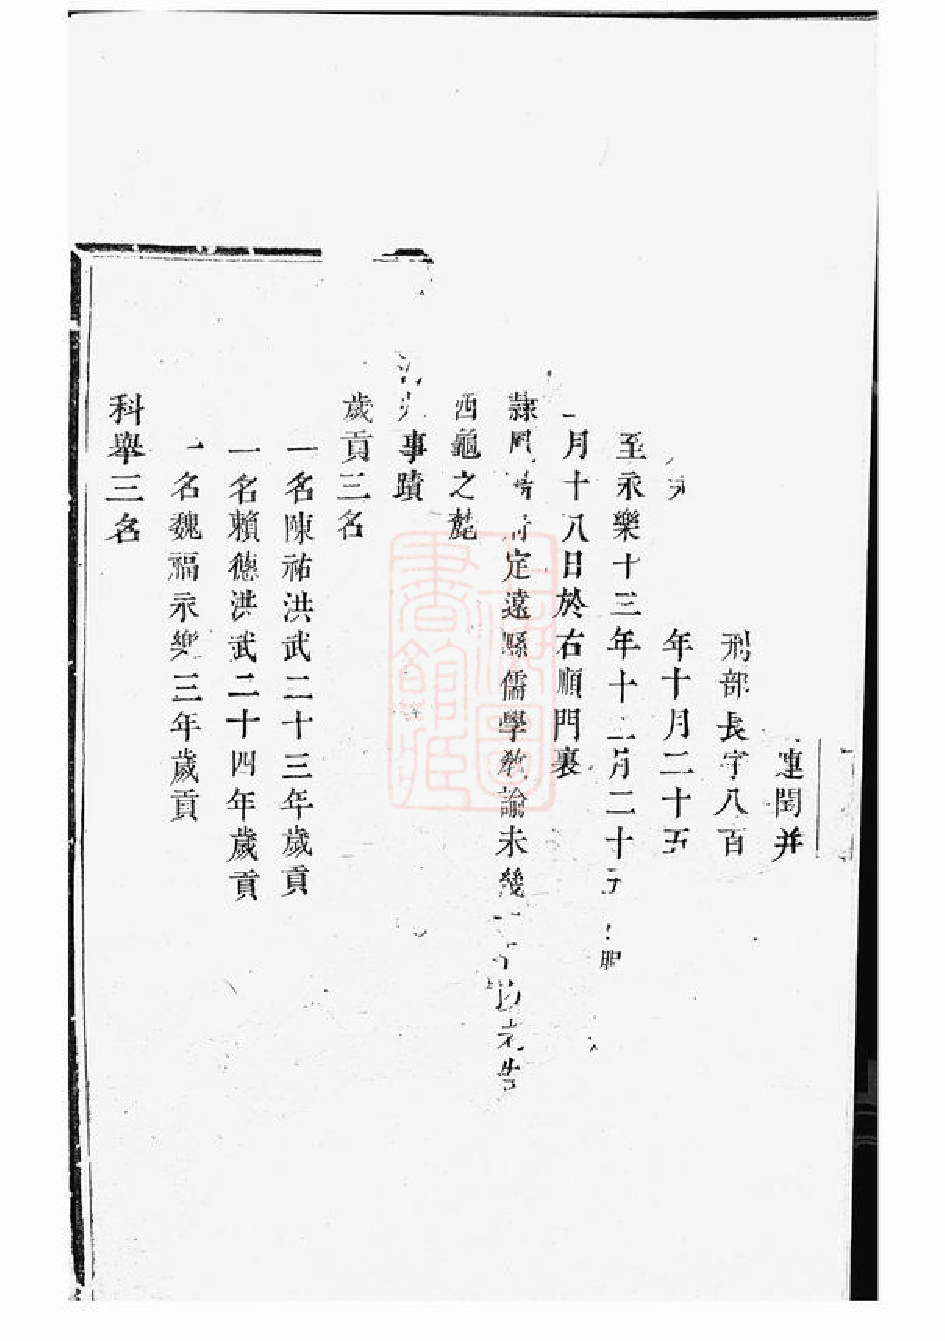 連閏并
刑部長字八百
年十月二十五
至永樂十三年十二月二十
月十八日於右順門裏
隷 定遠縣儒學教諭未幾
西龜之麓
事蹟
歲貢三名
一名陳祐洪武二十三年歲貢
一名賴德洪武二十四年歲貢
一名魏福永樂三年歲貢
科舉三名